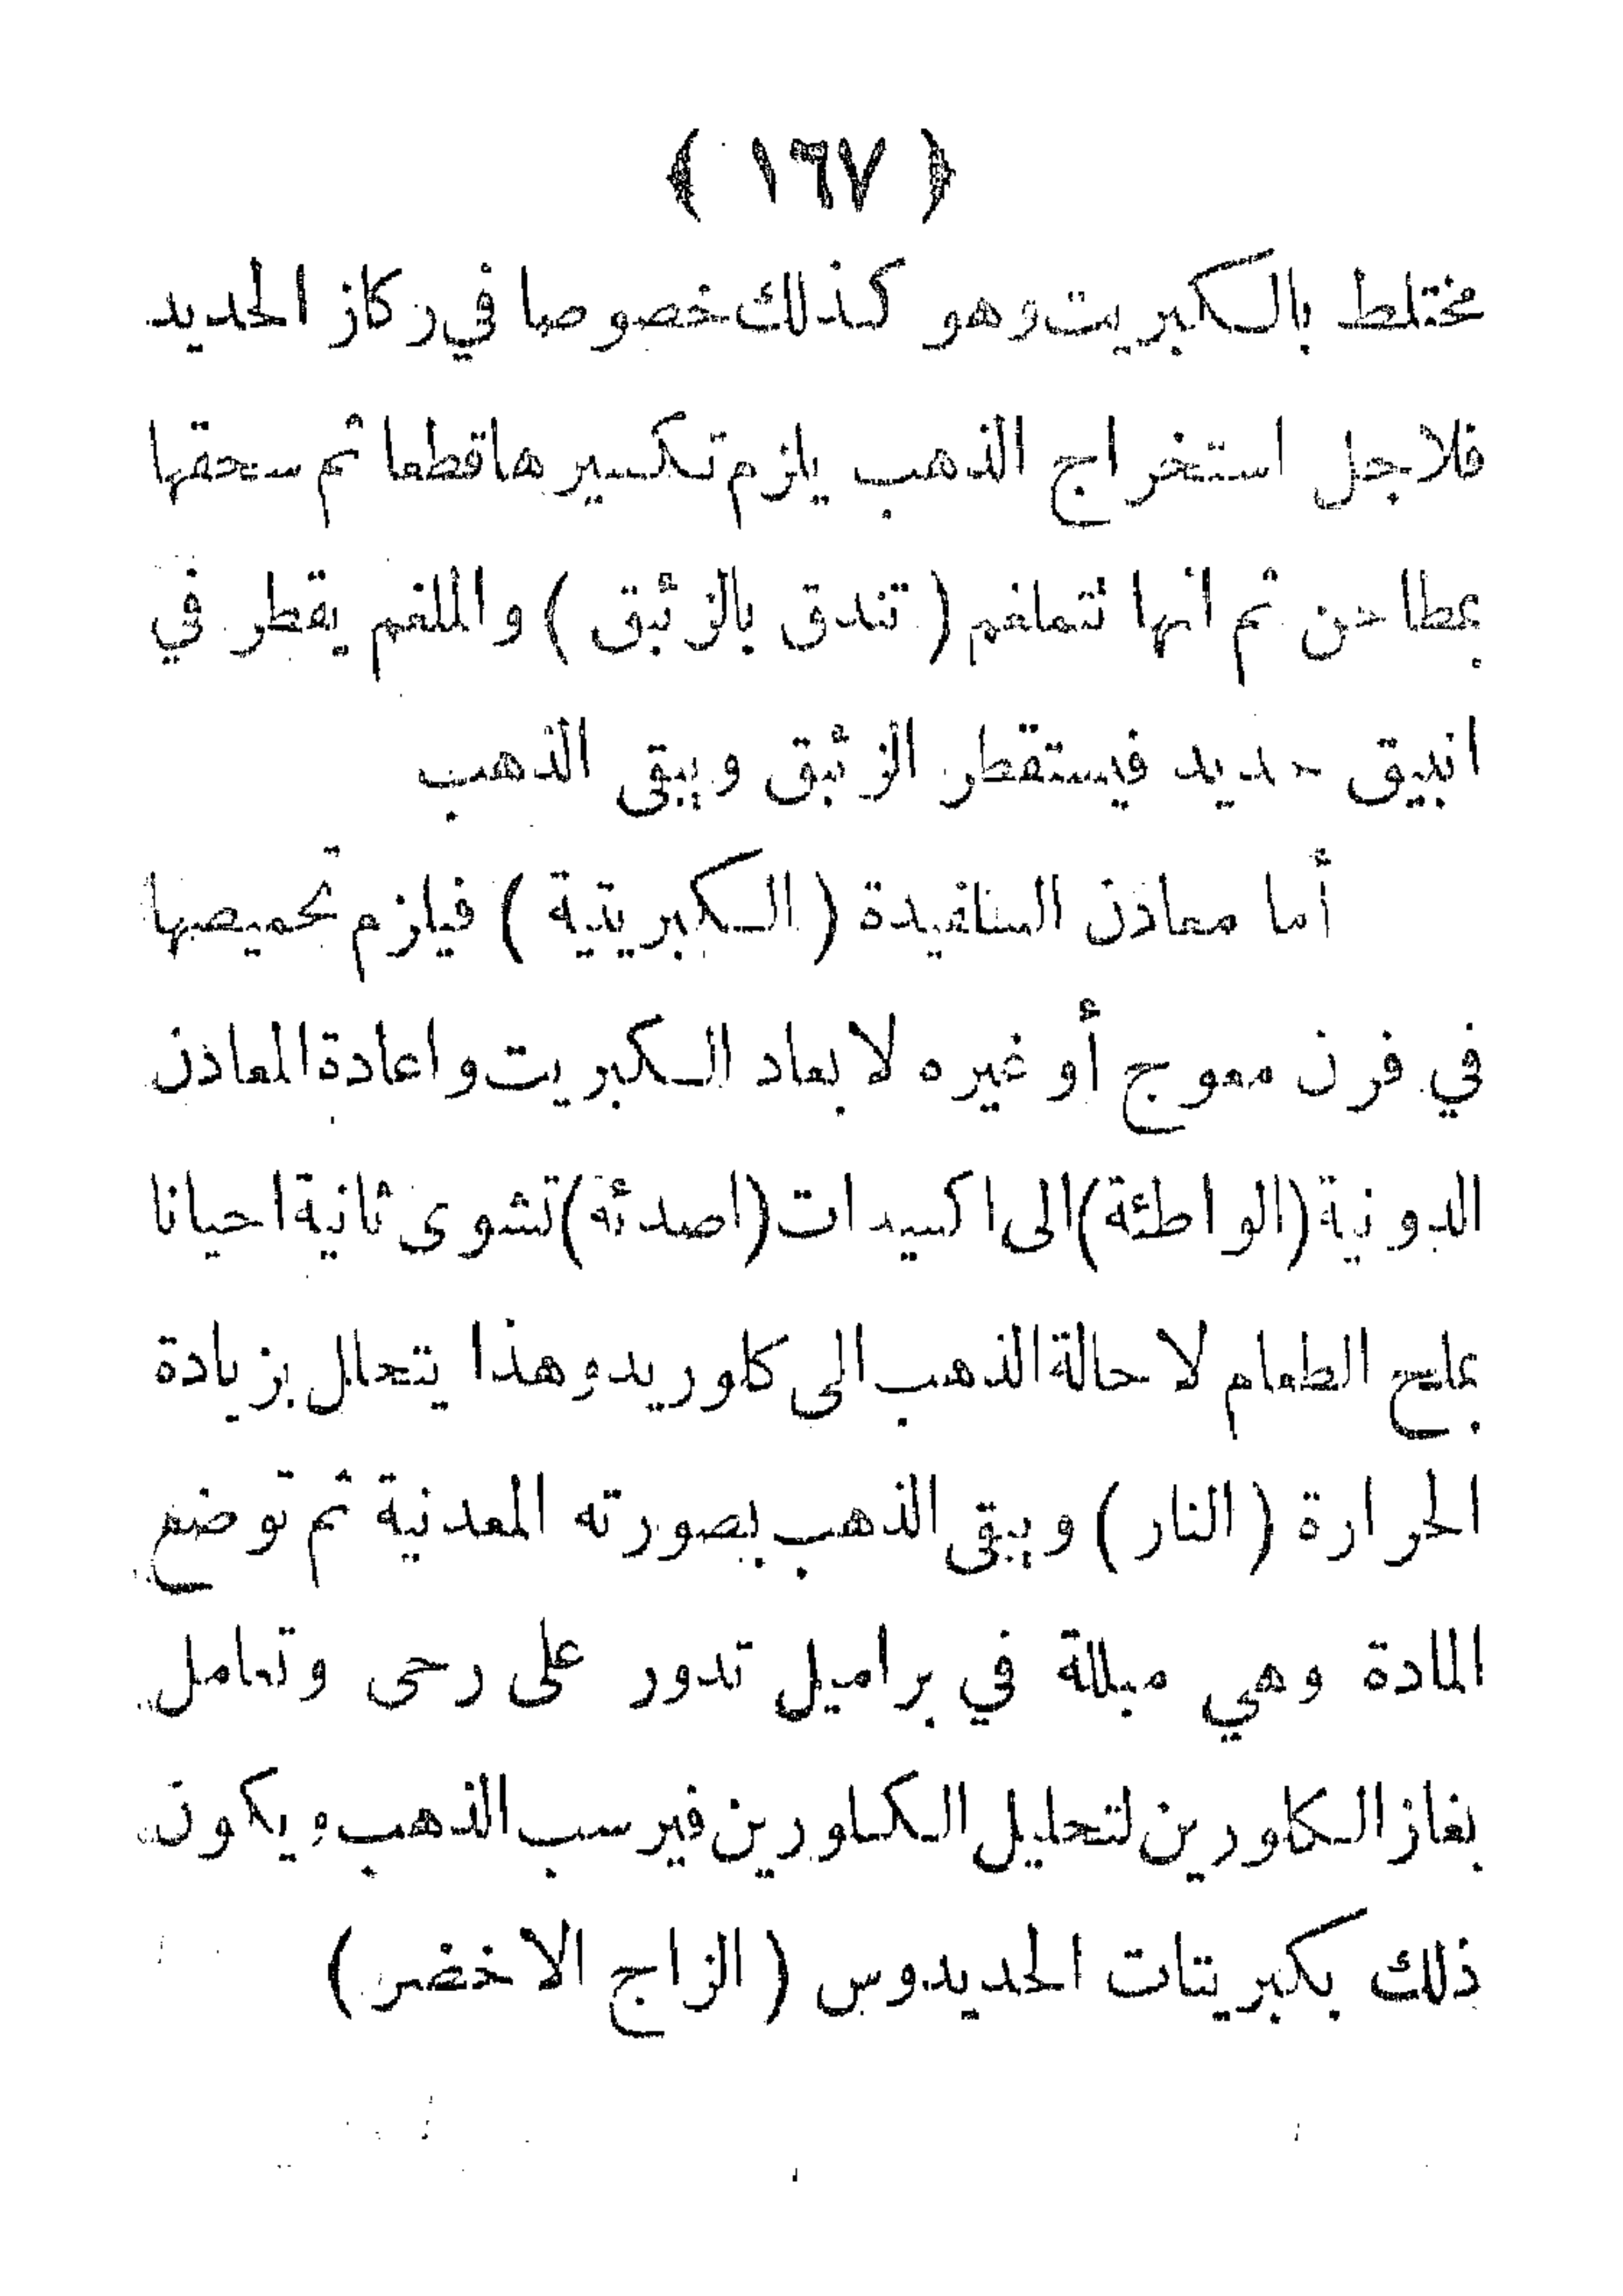 ﴿ ١٦٧ ﴾
مختلط بالكبريت وهو كذلك خصوصا في ركاز الحديد
فلاجل استخراج الذهب يلزم تكسيرها قطعا ثم سحقها
بمطاحن ثم انها تتملغم ( تندق بالزئبق ) والملغم يقطر في
انبيق حديد فيستقطر الزئبق ويبقى الذهب
أما معادن السلفيدة ( الكبريتية ) فيلزم تحميصها
في فرن معوج أو غيره لابعاد الكبريت واعادة المعادن
الدونية (الواطئة) الى اكسيدات (اصدئة) تشوى ثانية احيانا
بملح الطعام لاحالة الذهب الى كلوريد وهذا يتحلل بزيادة
الحرارة ( النار ) ويبقى الذهب بصورته المعدنية ثم توضع
المادة وهي مبللة في براميل تدور على رحى وتعامل
بغاز الكلورين لتحليل الكلورين فيرسب الذهب ويكون
ذلك بكبريتات الحديدوس ( الزاج الاخضر )